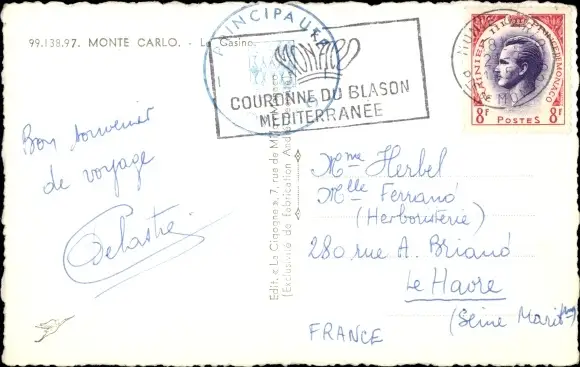 99.138.97. MONTE CARLO. - Le Casino.
PRINCIPAUTÉ
MONACO
COURONNE DU BLASON
MÉDITERRANÉE
RAINIER III PRINCE DE MONACO
8F POSTES 8F
Bon souvenir
de voyage
Delastre
Edit. « La Cigogne », 7, rue de
(Exclusivité de fabrication André
Mme Herbel
Mlle Ferrand
(Herboristerie)
280 rue A. Briand
Le Havre
(Seine Maritme)
FRANCE